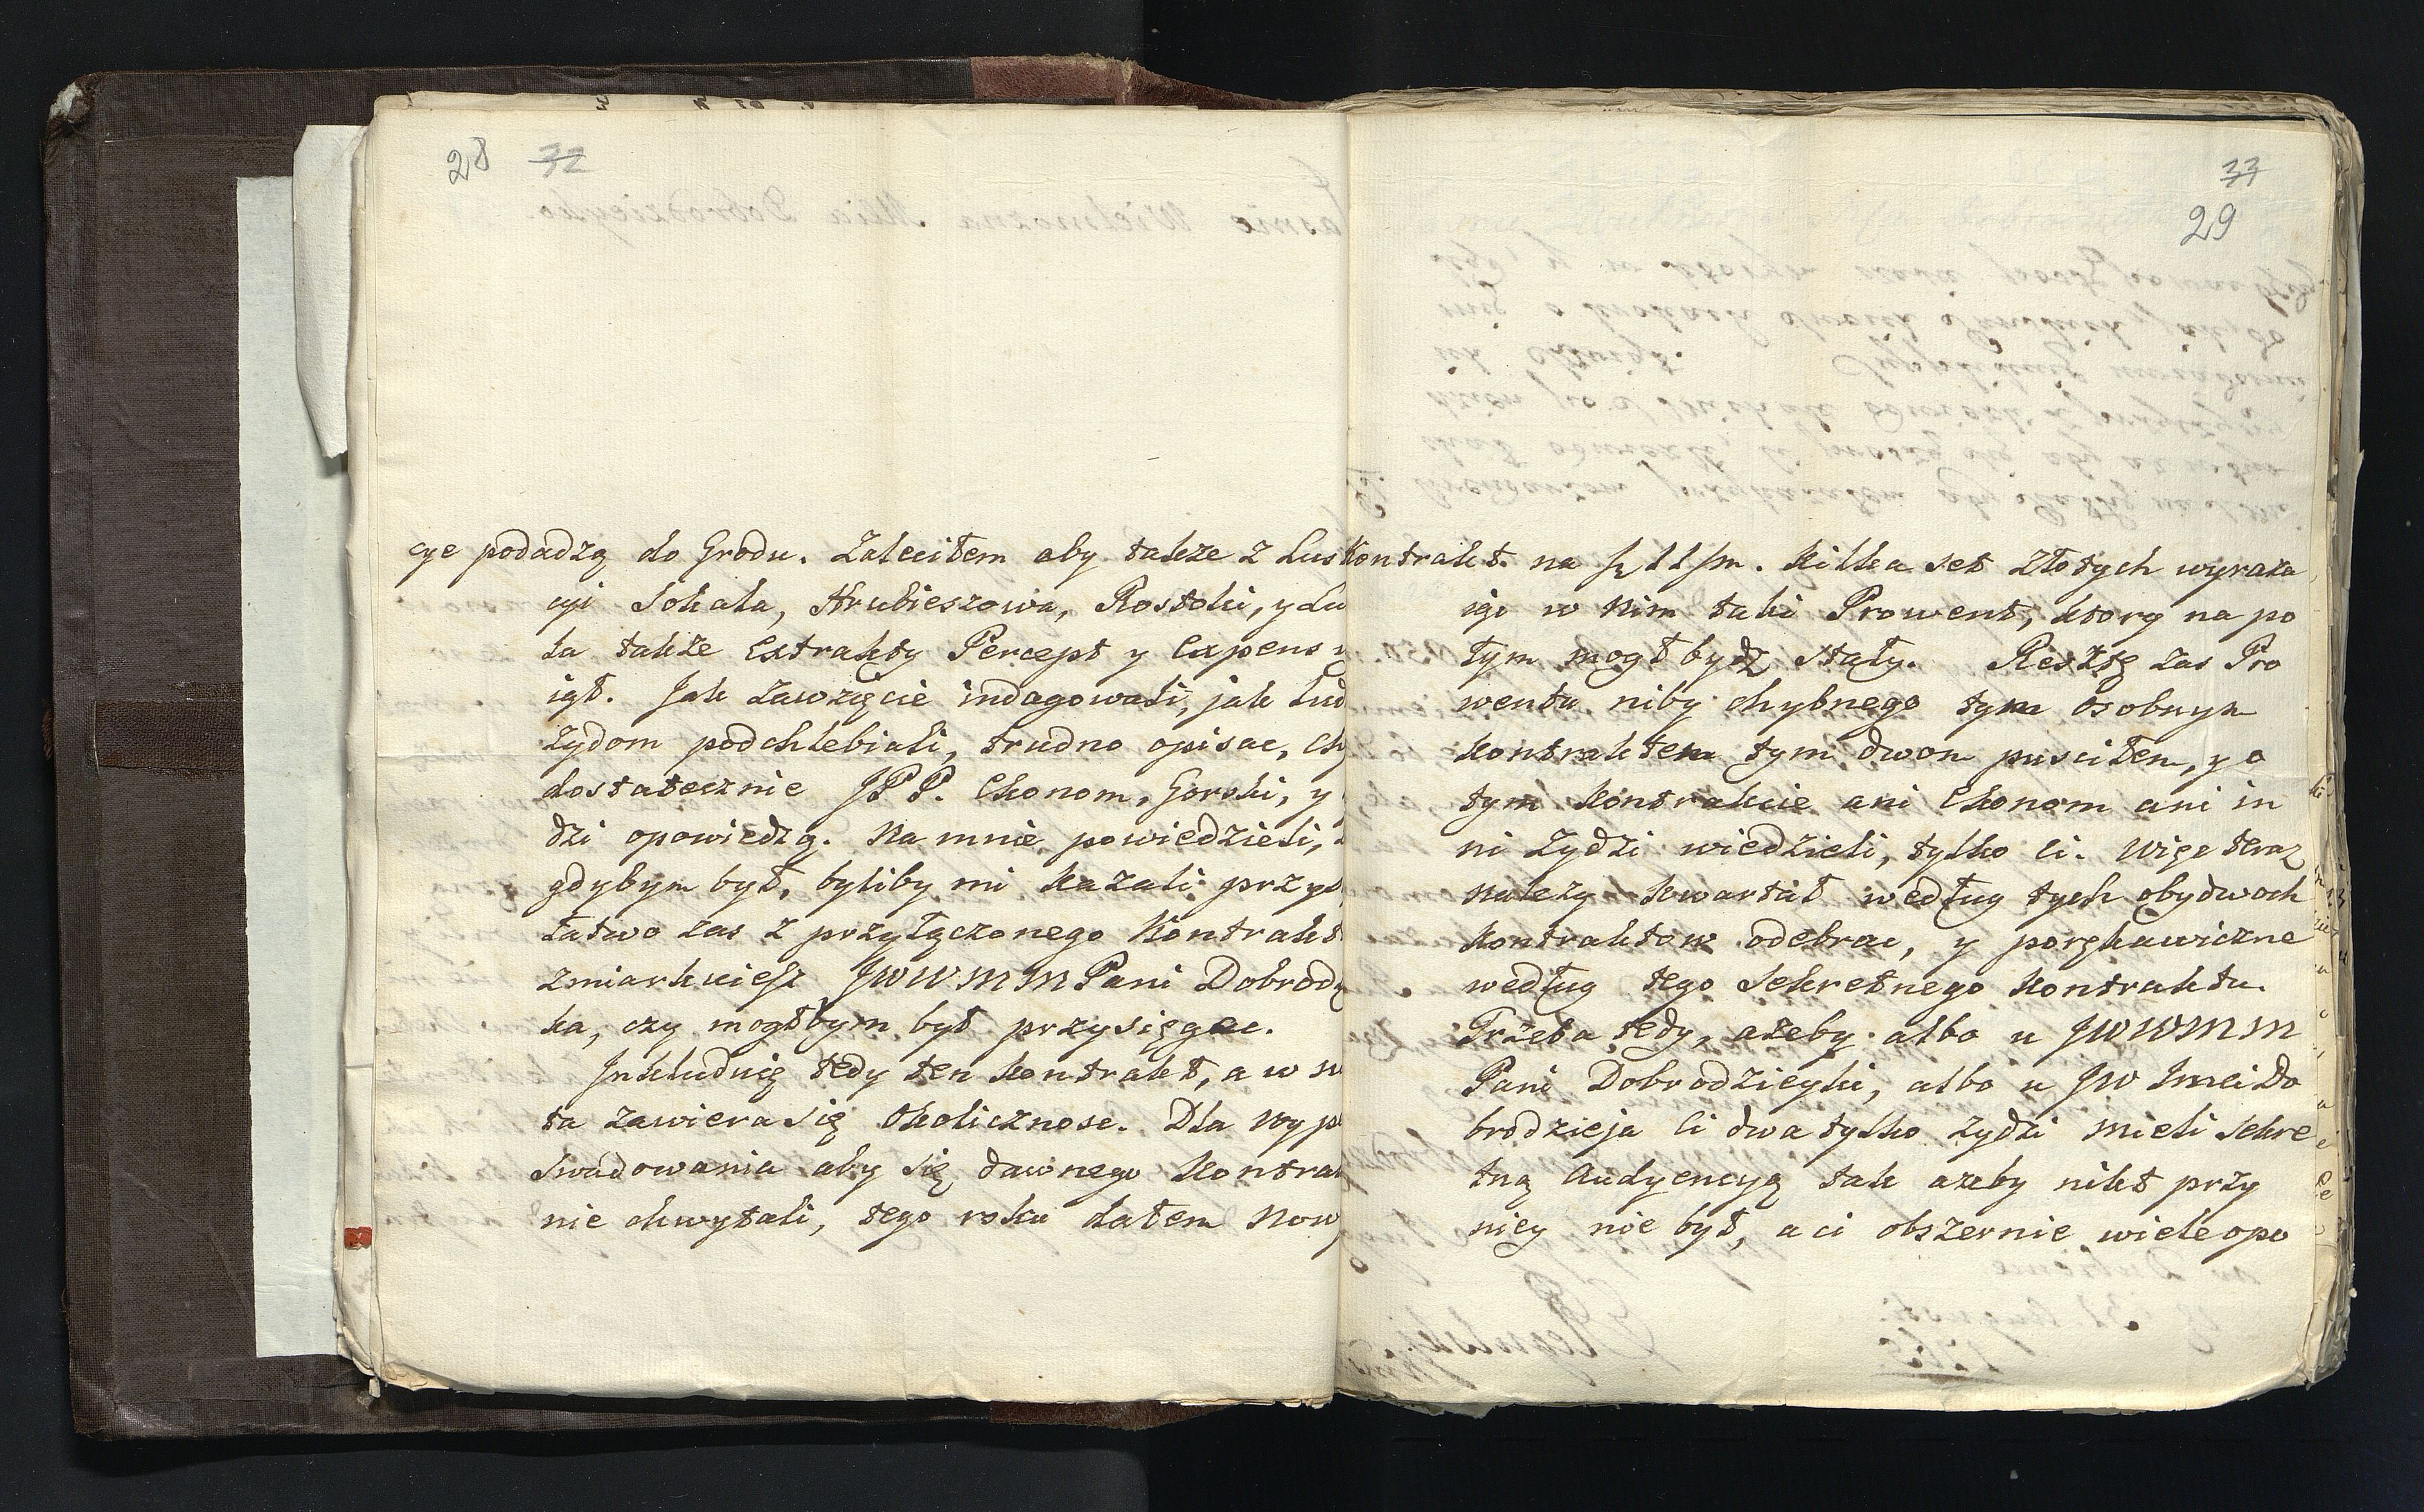 28 32
cye podadzą do Grodu. Zaleciłem aby także z Lus
cyi Sokala, Hrubieszowa, Rostoki, y Lu
ka także Extrakty Percept y Expens
iął. Jak zawzięcie indagowali, jak
żydom podchlebiali, trudno opisac,
dostatecznie JPP. Ekonom, Gorski, y
dzi opowiedzą. Na mnie powiedzieli,
gdybym był, byliby mi kazali przys
łatwo zas z przyłączonego Kontrakt
zmiarkuiesz JWWMMPani Dobrodz
ka, czy mogłbym był przysięgac.
Inkluduię tedy ten kontrakt, a w
ta zawiera się Okolicznosc. Dla wyp
swadowania aby się dawnego Kontrak
nie chwytali, tego roku dałem Nowy
33
29
Kontrakt na
Kilka set Złotych wyraża
iąc w nim taki Prowent, ktory na po
tym mogł bydz stały. Resztę zas Pro
wentu niby chybnego tym osobnym
Kontraktem tym dwom pusciłem, y o
tym Kontrakcie ani Ekonom ani in
ni Zydzi wiedzieli, tylko ci. Więc teraz
należy kwartał według tych obydwoch
Kontraktow odebrac, y porękawiczne
według tego Sekretnego Kontraktu.
Trzeba tedy, ażeby albo u JWWMM
Pani Dobrodzieyki, albo u JW Imci Do
brodzieja ci dwa tylko żydzi mieli Sekre
tną Audyencyą tak ażeby nikt przy
niey nie był, a ci obszernie wiele opo